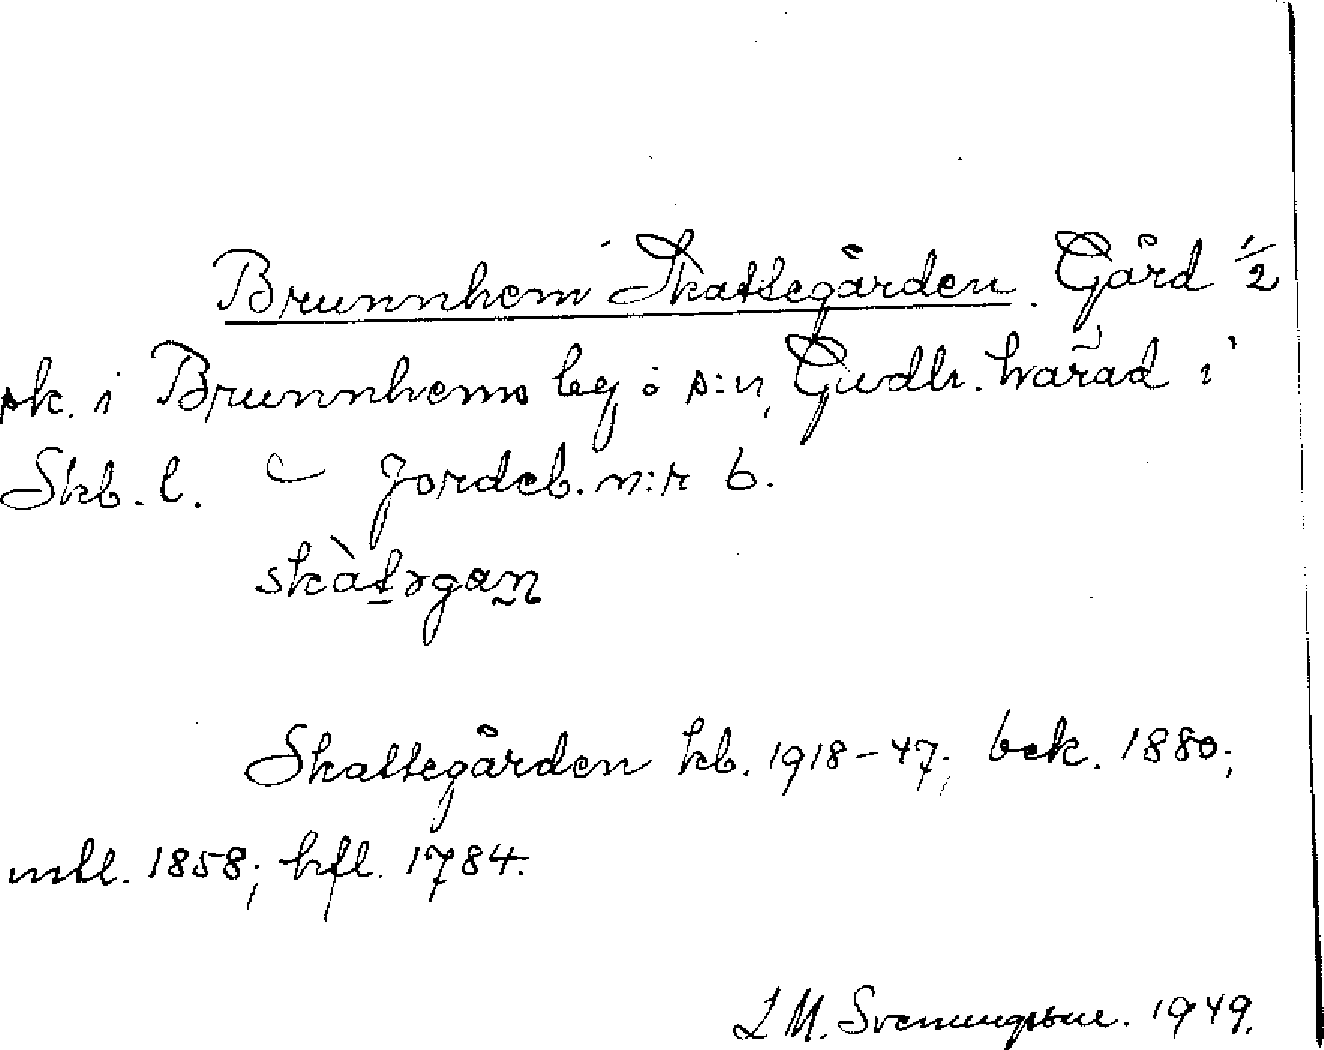 Brunnhem Skattegården. Gård 1/2
sk. i Brunnhems by o s:n, Gudh. härad i
Skb. l. – Jordeb. n:r 6.
skàt̠əgan̰
Skattegården kb. 1918–47; bek. 1880;
mtl. 1858; hfl. 1784.
L M. Svenungsson. 1949.